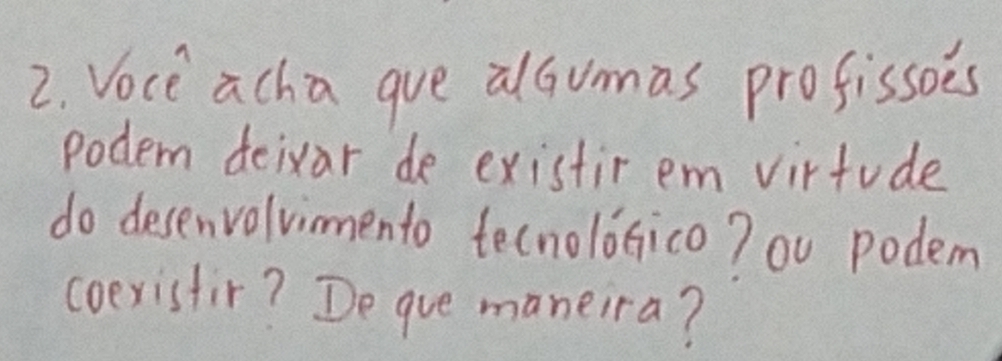 2. Você acha que algumas profissões
podem deixar de existir em virtude
do desenvolvimento tecnológico? ou podem
coexistir? De que maneira?